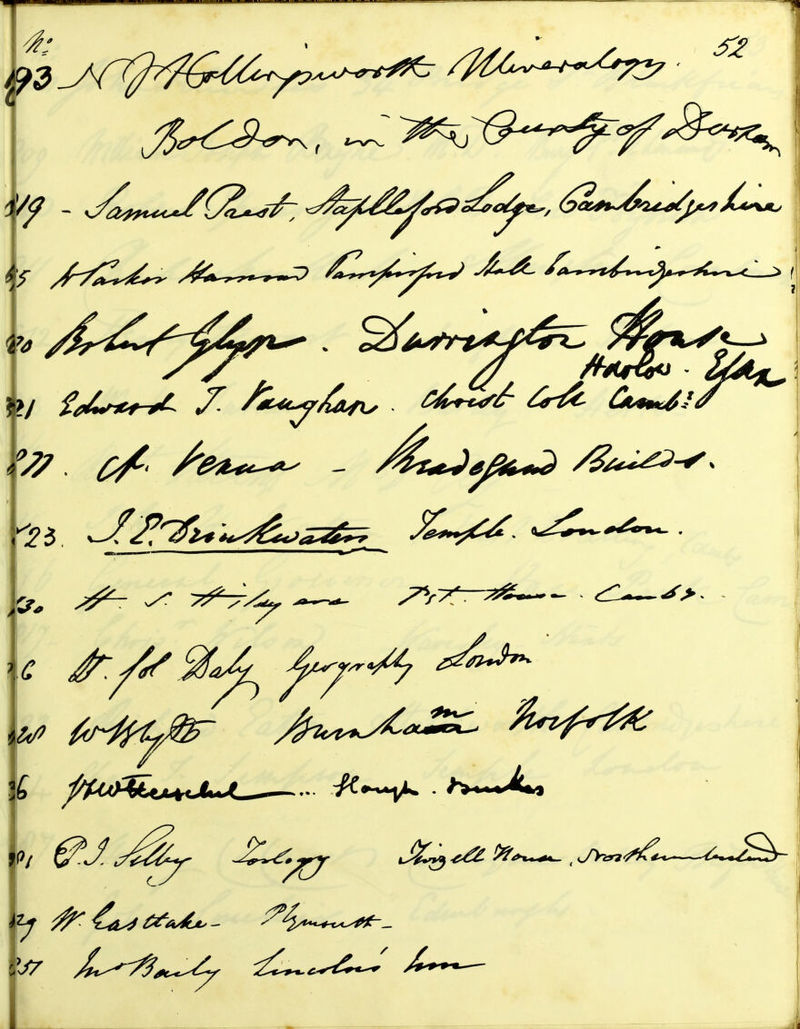 No. 52
N J Hollingsworth Mineralogy.
Boldon, in the County of Durham
- Samuel Prest, Staplleford Lodge, Cambridgeshire
Parker Hamond Pampisford Hall Cambridgeshire
Robert Glynn. Durrington House
Harlow. Essex
321 Edward T. Vaughan. Christ Coll Camb:
A. Venua - Builds.
J. E. Drinkwater Temple. London.
H. S. Hildyard Pet. House. Camb.
Lt. Col Daly Geography London
W Blyth Burnham Norfolk
JFW Herschel ... Slough. Bucks
P. J. Selby Zoology Twizell House, Northumberland
W. Eastlake - Plymouth -
Baily Lincolns' Inn